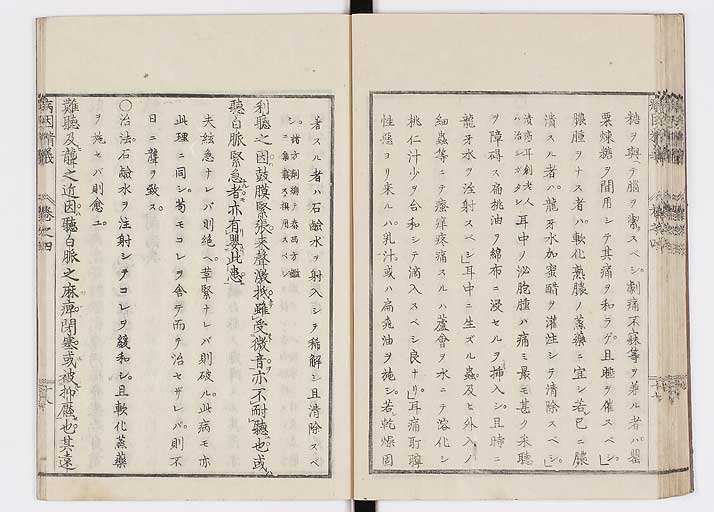 糖ヲ與テ腦ヲ潔スベシ劇痛不寐等ヲ兼ル者ハ罌
粟煉糖ヲ間用シテ其痛ヲ和ラゲ且睡ヲ催スベシ
膿腫ヲナス者ハ軟化熱膿ノ蒸藥ニ宜シ若已ニ膿
潰スル者ハ龍牙水加蜜醋ヲ灌注シテ清除スベシ
潰瘍耳剌老人ハ治シガタシ
耳中ノ泌胞腫ハ痛ミ最モ甚ク釆聽
ヲ障碍ス扁桃油ヲ綿布ニ浸セルヲ挿入シ且時ニ
龍牙水ヲ注射スベシ耳中ニ生ズル蟲及ヒ外入ノ
細蟲等ニテ瘙痒疼痛スルハ蘆會ヲ水ニテ溶化シ
桃仁汁少ヲ台和シテ滴入スベシ良ナリ耳痛耵聹
性惡ヨリ來ルハ乳汁或ハ扁桃油ヲ施シ若乾燥固
著スル者ハ石鹸水ヲ射入シテ稀解シ且清除スベ
シ
利聽之因鼓膜緊張夾聲激抵雖受微音亦不耐聽也或
聽白脈緊急者亦有嬰此患
夫絃急ナレバ則絶ヘ革緊ナレバ則破ル此病モ亦
此理ニ同シ苟モコレヲ舎テ而ヲ治セザレバ則不
日ニ聾ヲ致ス
〇治法石鹸水ヲ注射シテコレヲ緩和シ且軟化蒸藥
ヲ施セバ則愈ユ
難聽及聾之近因聽白脈之麻痺閉塞或被抑壓也其遠
病因精義
卷之四
十八